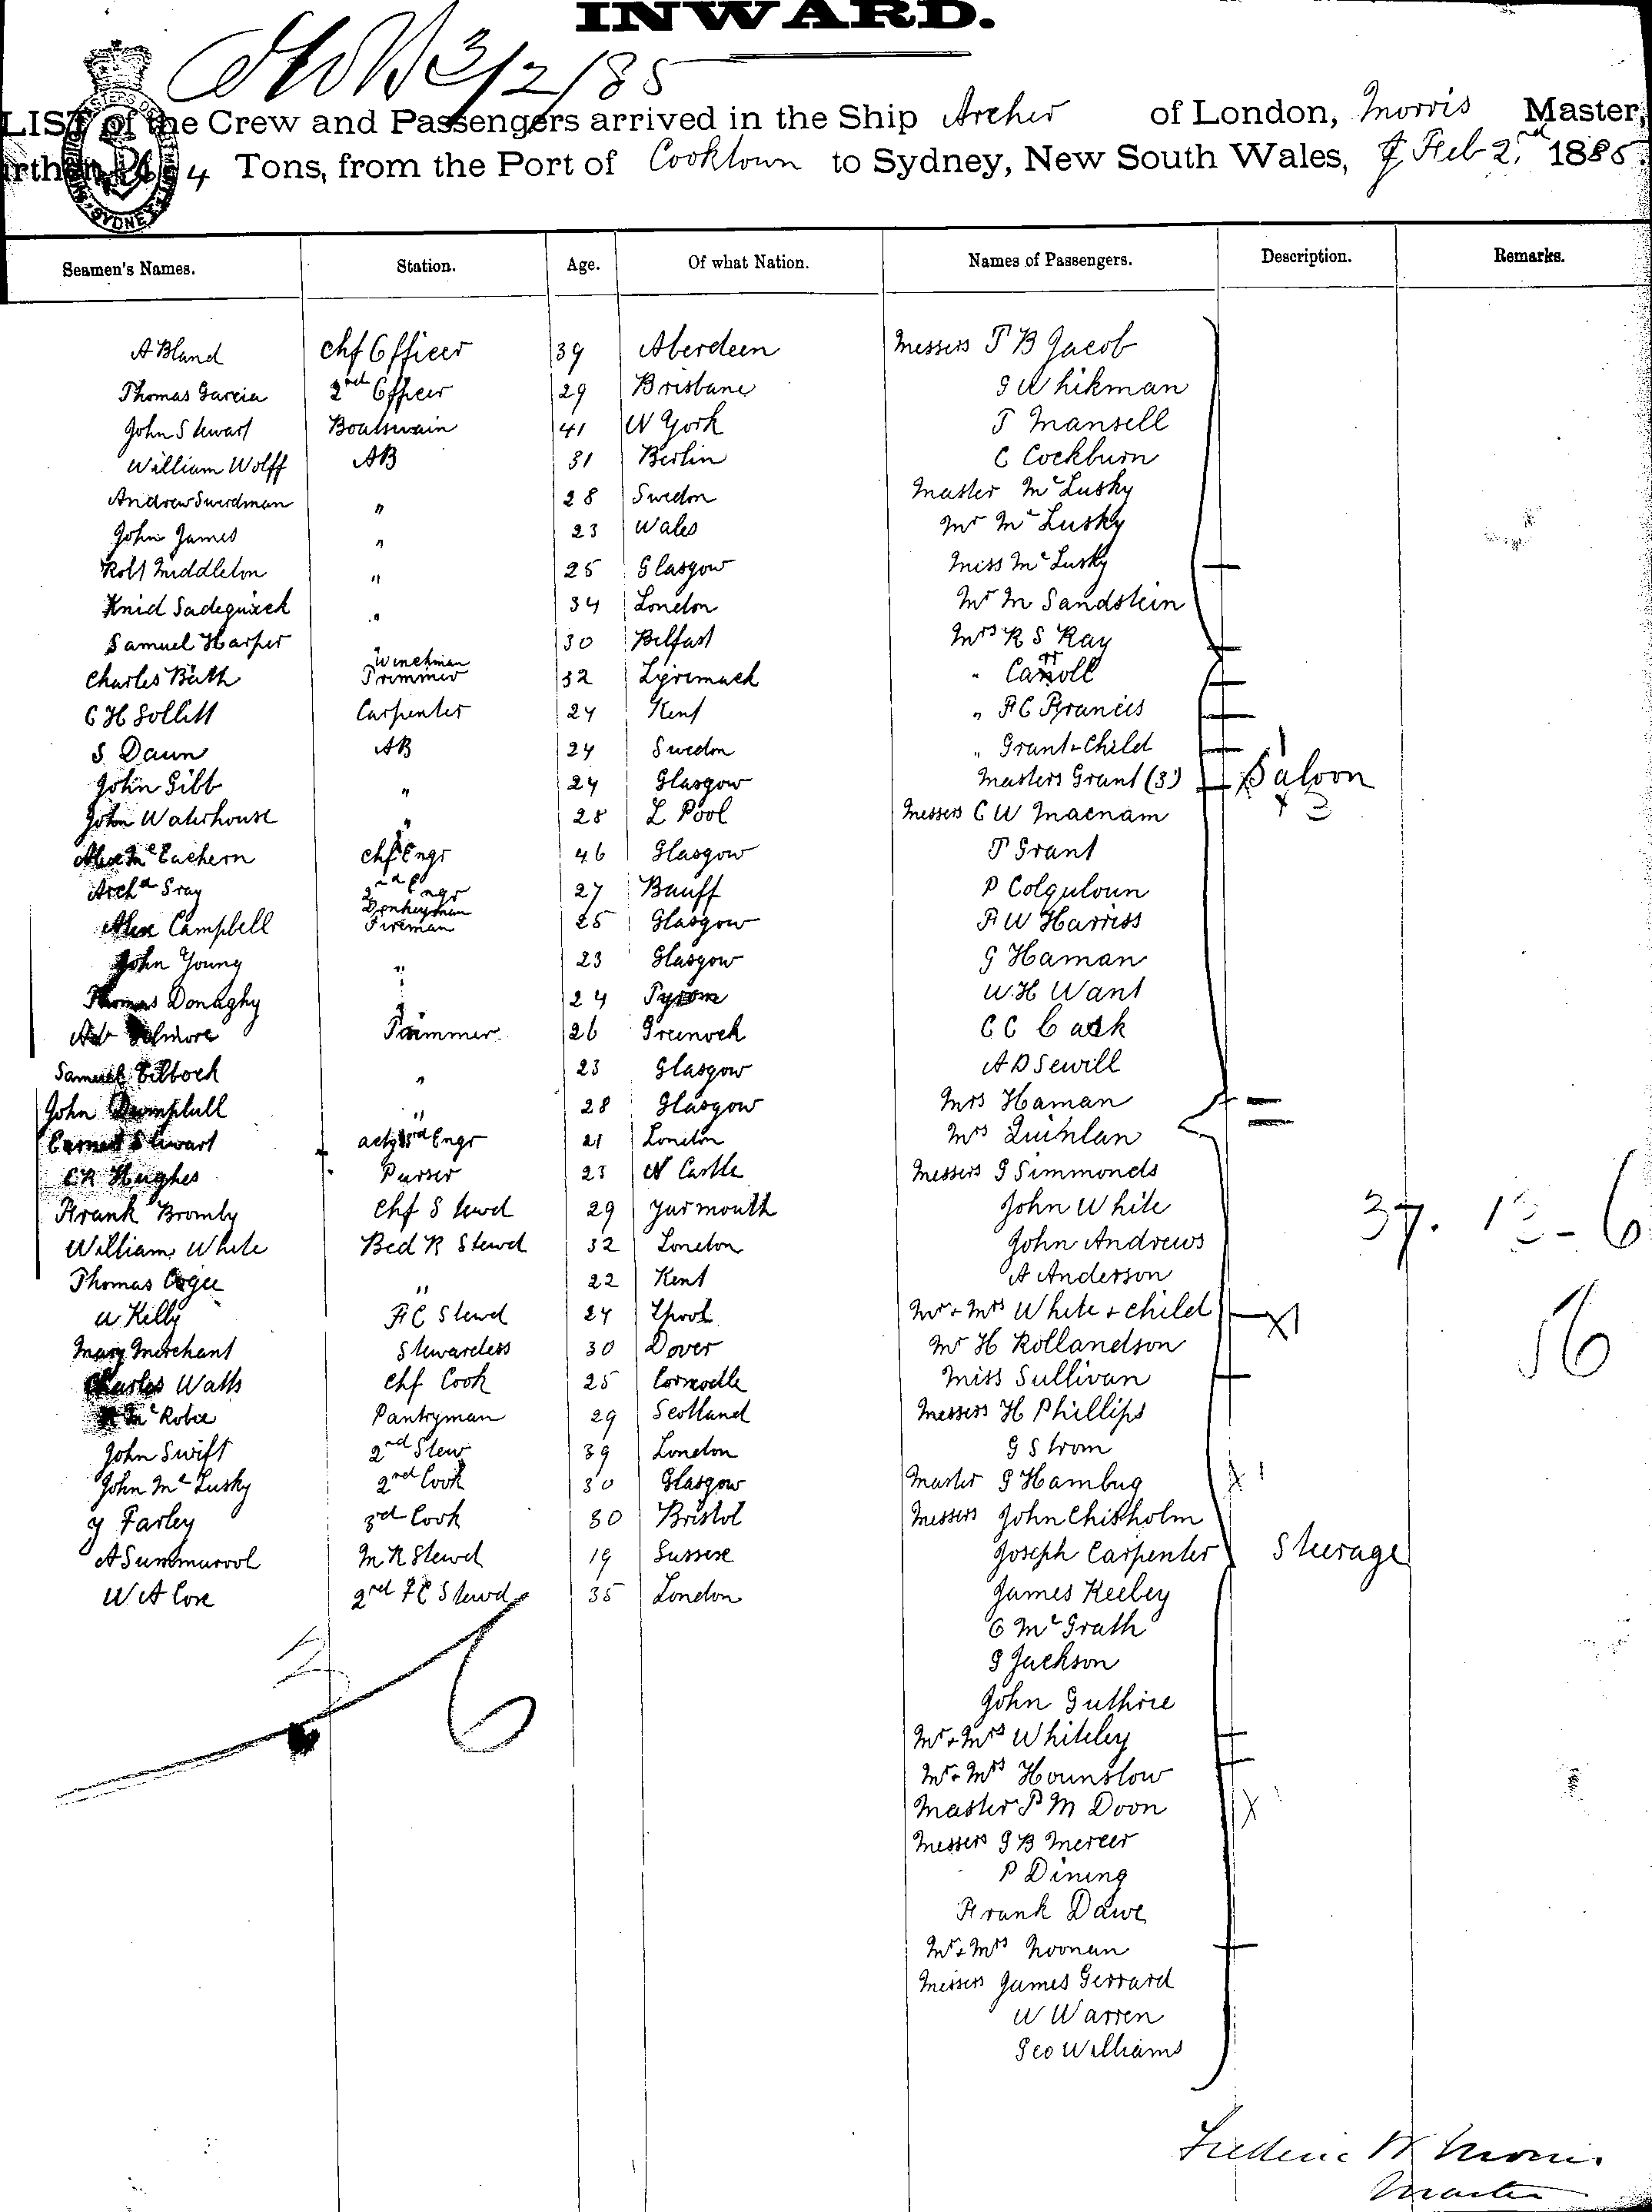 INWARD.
3/2/85
LIST of the Crew and Passengers arrived in the Ship Archer of London, Morris Master,
4 Tons, from the Port of Cooktown to Sydney, New South Wales, Feb 2nd 1885
Seamen's Names. Station. Age. Of what Nation. Names of Passengers. Description. Remarks.
A Bland Chf Officer 39 Aberdeen Messers T B Jacob
Thomas Garcia 2nd Officer 29 Brisbane Whikman
John Stewart Boatswain 41 N York T Mansell
William Wolff AB 31 Berlin C Cockburn
Andrew Swerdman " 28 Swedon Master McLusky
John James " 23 Wales Mr McLusky
Robt Middleton " 25 Glasgow Miss McLusky
Sadequick " 34 London Mr M Sandstein
Samuel Harper 30 Belfast Mrs R S Ray
Charles Bath Winchman Trimmer 32 " Carroll
C H Sollitt Carpenter 24 Kent " F C Francis
S Daun AB 24 Swedon " Grant + Child
John Gibb " 24 Glasgow Masters Grant (3) Saloon
John Waterhouse " 28 L Pool Messers C W Macnam
Alex McEachern Chf Engr 46 Glasgow P Grant
Archd Gray 2nd Engr 27 Banff P Colquloun
Alex Campbell Donkeyman Fireman 25 Glasgow F W Harriss
John Young " 23 Glasgow G Haman
Thomas Donaghy " 24 W.H Want
Trimmer 26 Greenock C C
Samuel " 23 Glasgow A D Sewill
John " 28 Glasgow Mrs Haman
Stewart actg 3rd Engr 21 London Mrs Quinlan
Hughes Purser 23 N Castle Messers G Simmonds
Frank Bromly Chf Stewd 29 Yarmouth John White
William White Bed R Stewd 32 London John Andrews
Thomas " 22 Kent A Anderson
W Kelly F C Stewd 24 Lpool Mr + Mrs White + child
Mary Merchant Stewardess 30 Dover Mr H Rollandson
Charles Watts Chf Cook 25 Miss Sullivan
McRobie Pantryman 29 Scotland Messers H Phillips
John Swift 2nd Stew 39 London G Strom
John McLusky 2nd Cook 30 Glasgow Master G Hambug
Farley 3rd Cook 30 Bristol Messers John Chisholm
A Summurvol M R Stewd 19 Sussex Joseph Carpenter Steerage
W A Core 2nd F C Stewd 35 London James Keeley
C McGrath
G Jackson
John Guthrie
Mr + Mrs Whiteley
Mr + Mrs Hounslow
Master P M Doon
Messers G B Mercer
P Dining
Frank Dawe
Mr + Mrs Noonan
Messers James Gerrard
W Warren
Geo Williams
36
37. 13 - 6
56
Frederic W Morris
Master